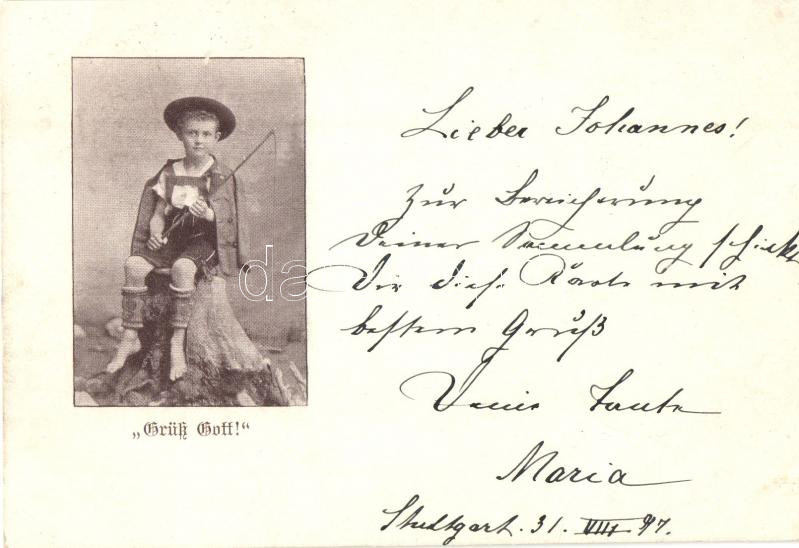 Lieber Johannes!
Zur Bereicherung
Deiner Sammlung schickt
Dir diese Karte mit
bestem Gruß
Deine Tante
Maria
Stuttgart. 31. VIII 97.
„Grüß Gott!“
da